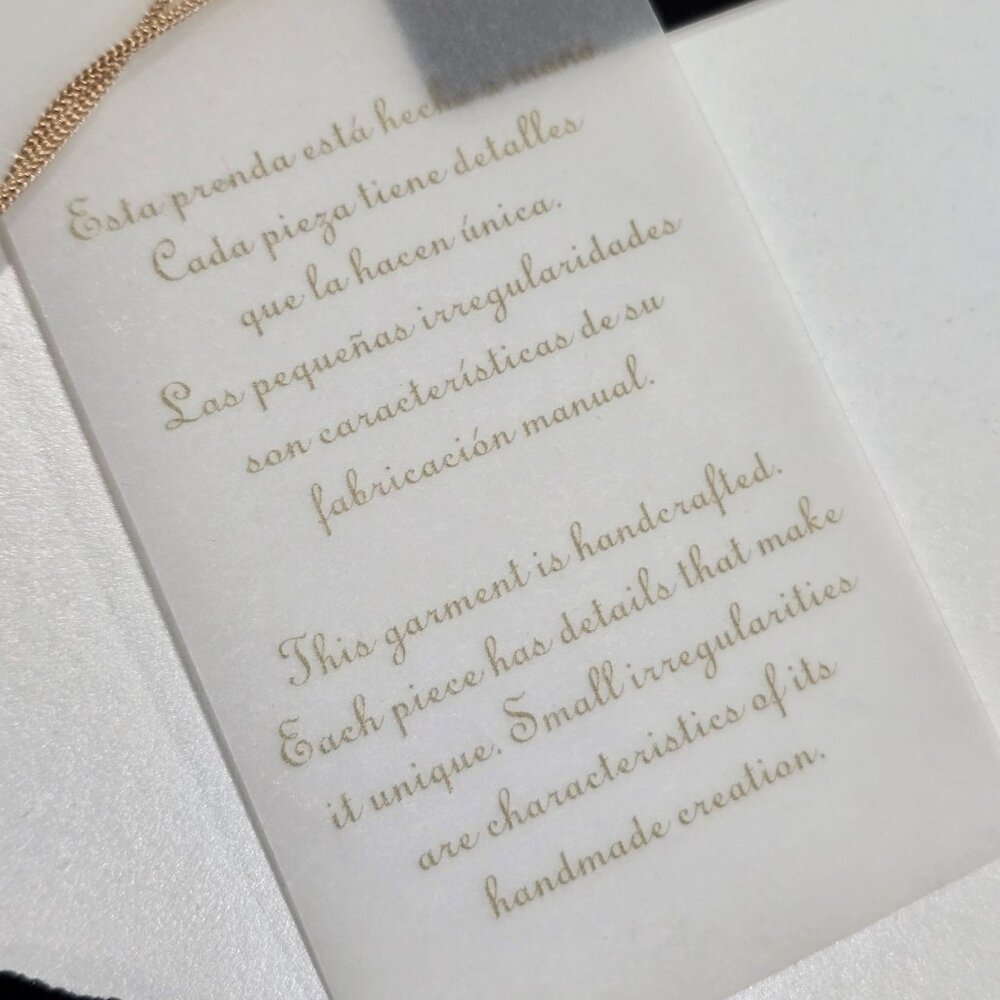 Esta prenda está hecha a mano
Cada pieza tiene detalles
que la hacen única.
Las pequeñas irregularidades
son características de su
fabricación manual.
This garment is handcrafted.
Each piece has details that make
it unique. Small irregularities
are characteristics of its
handmade creation.